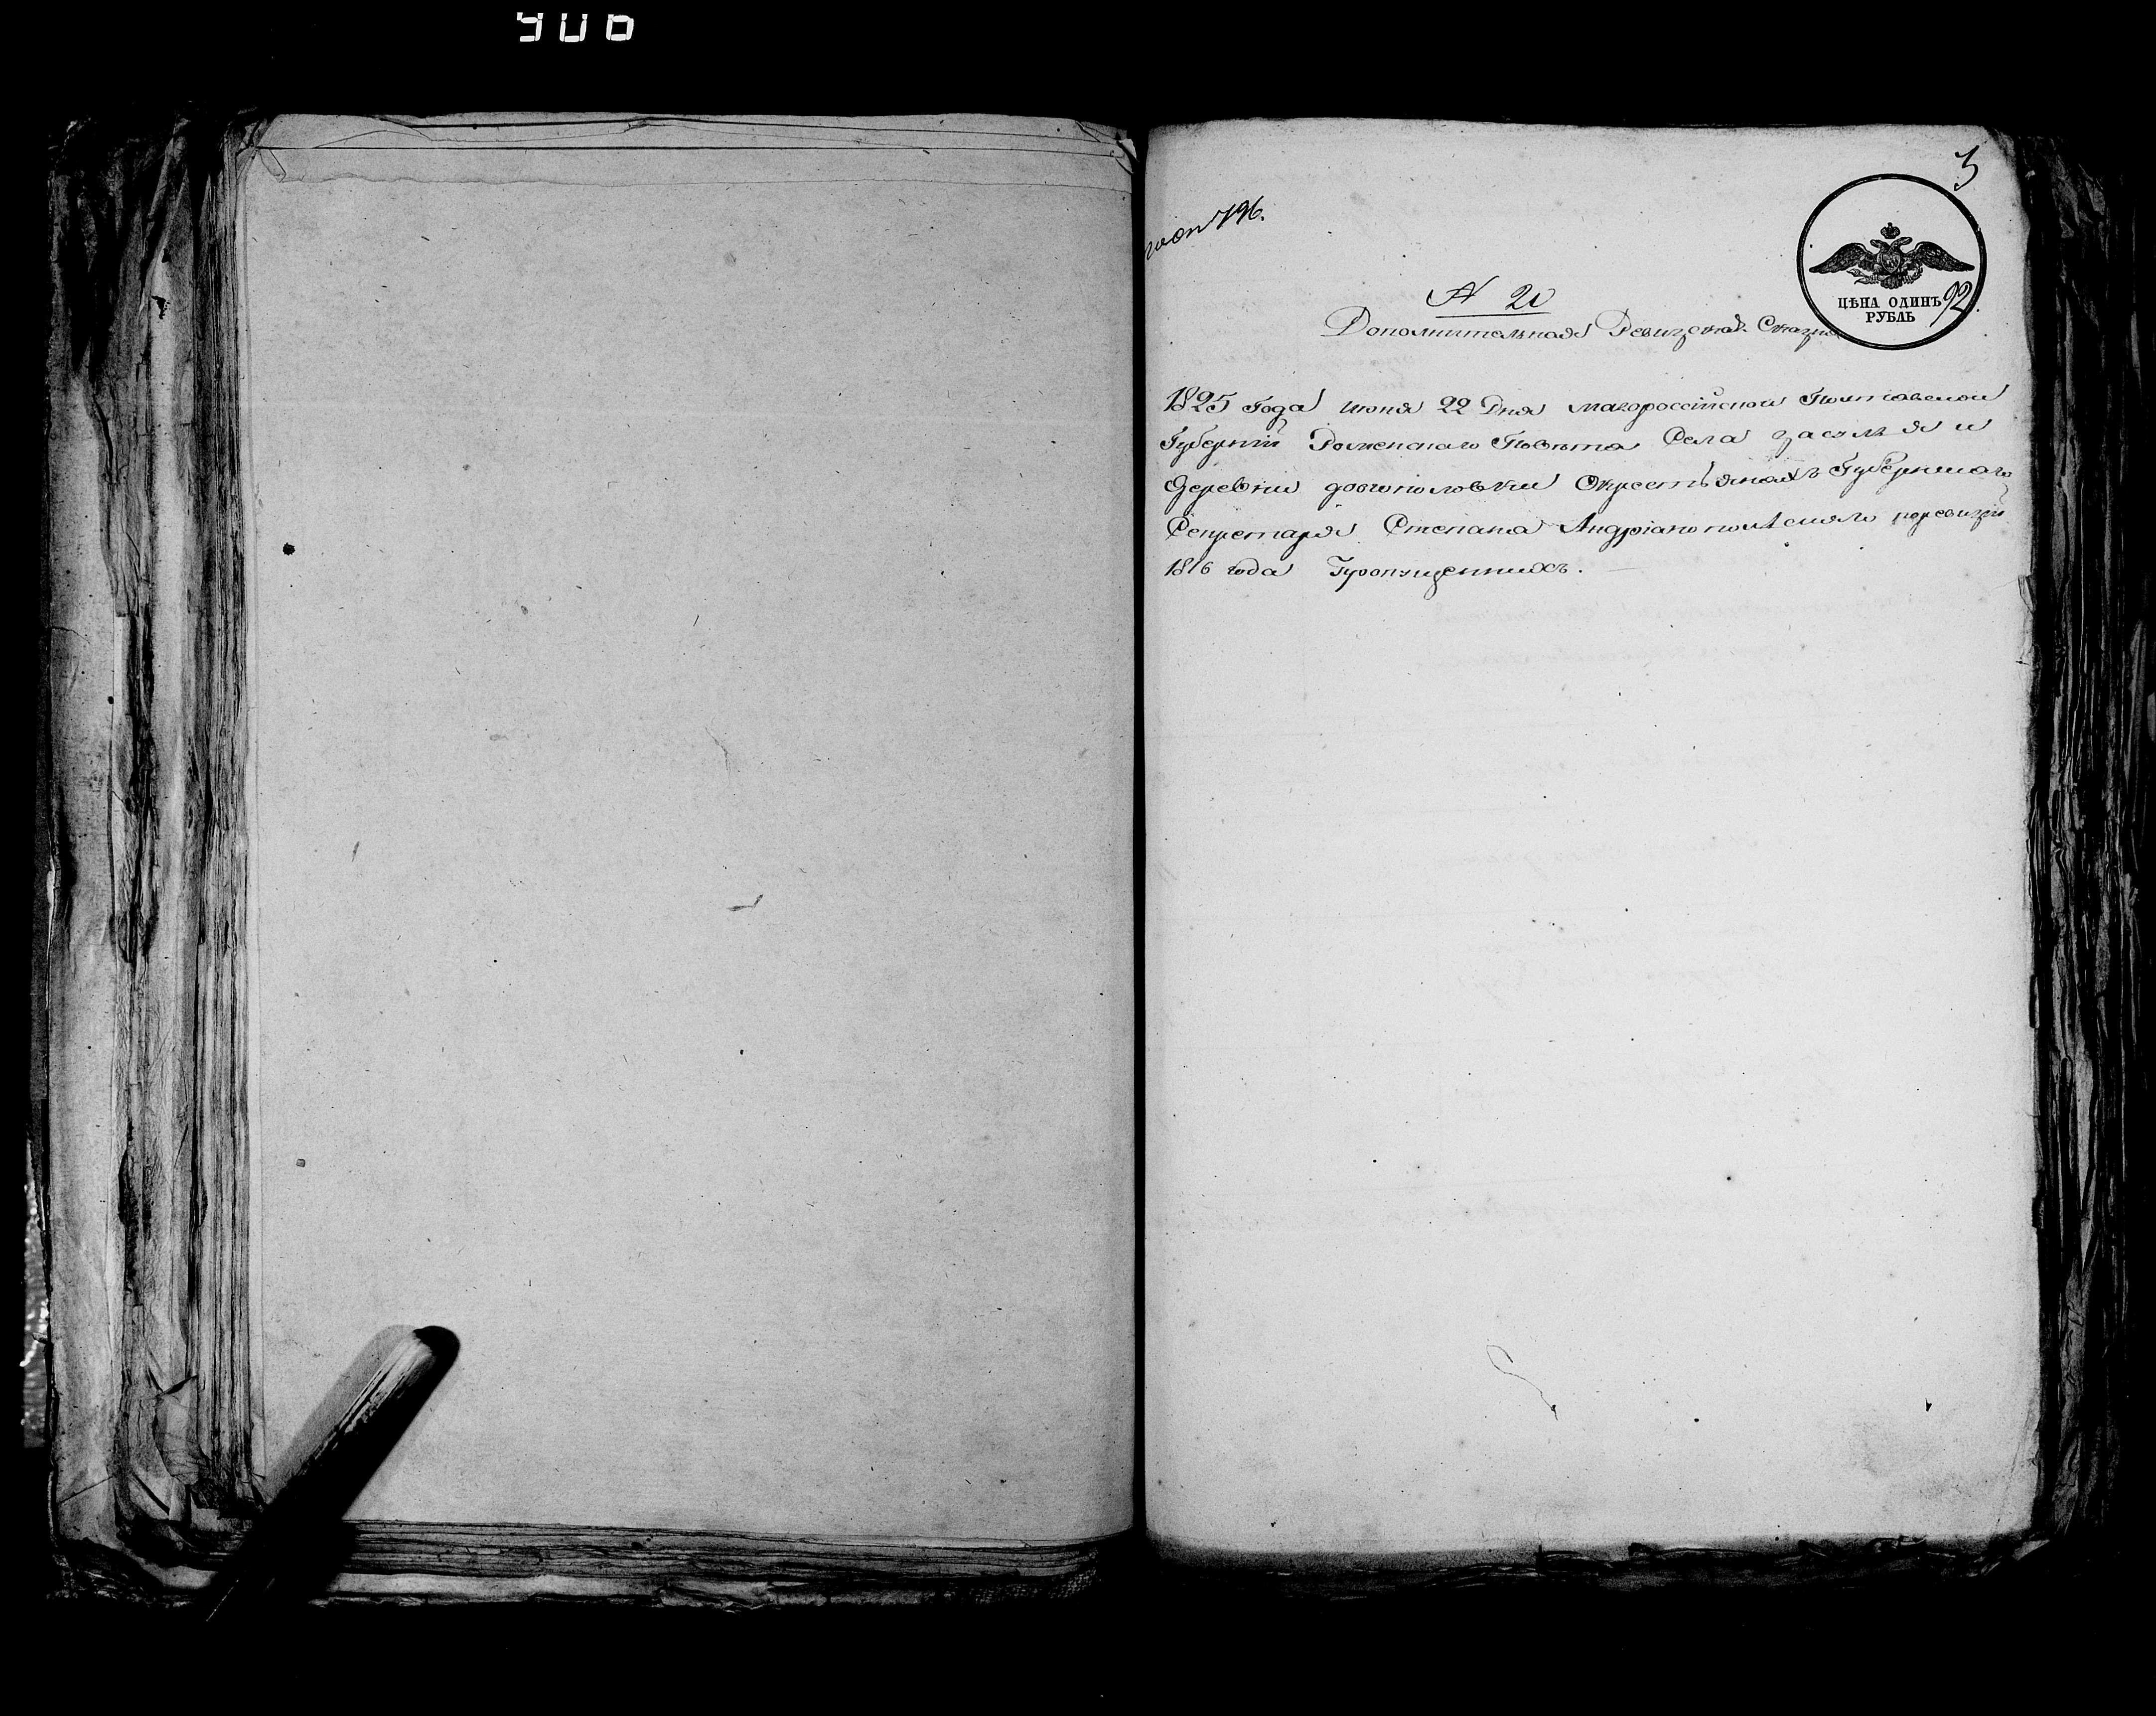 906
3
796.
ЦѢНА ОДИНЪ
РУБЛЬ
92
N 20
Дополнительная Ревизская Сказка
1825 Года июня 22 Дня малороссійской Полтавской
Губерніи Роменского Повѣта Села засулья и
Деревни довгополовки Окрестьянахъ Губернскаго
Секретаря Степана Андріанопольского поревизіи
1816 года Пропущенныхъ.